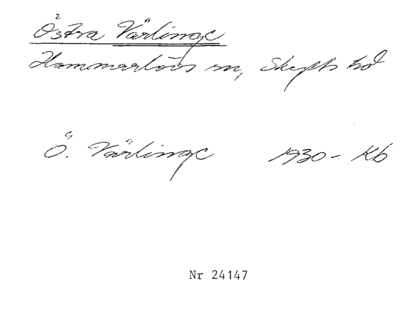 Östra Värlinge
Hammarlövs sn, Skytts hd
Ö. Värlinge 1930- Kb
Nr 24147